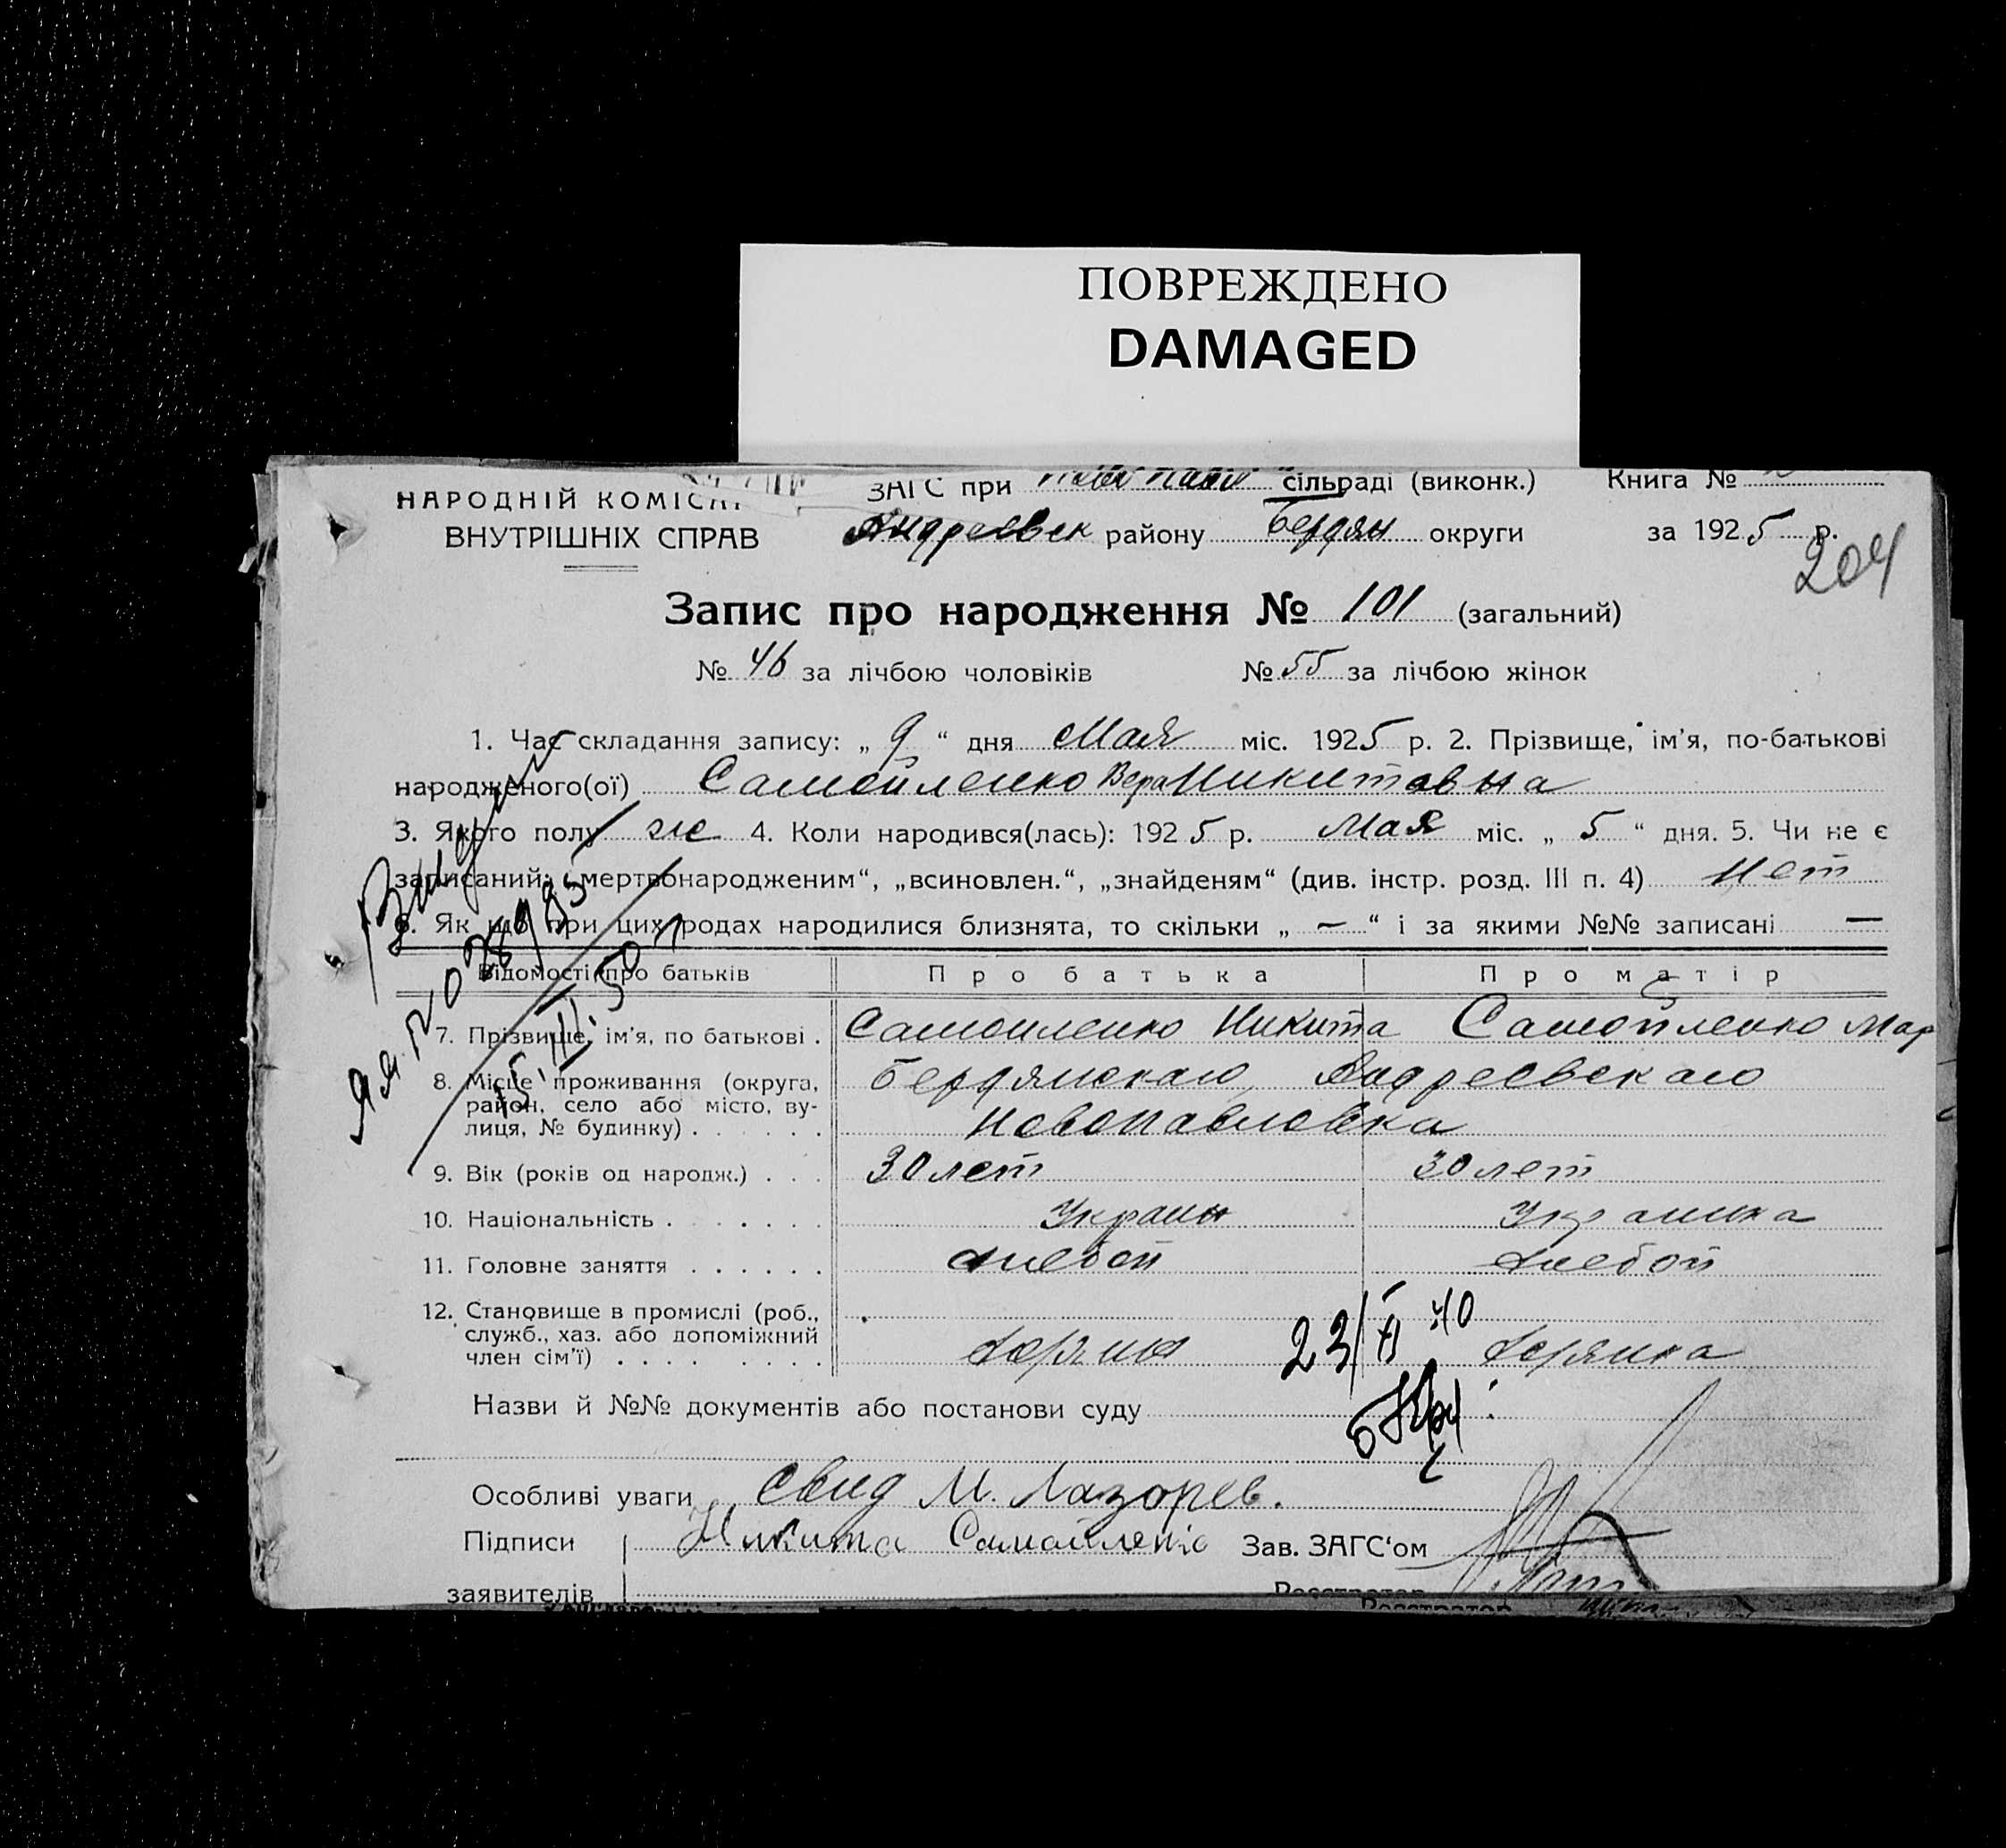 ПОВРЕЖДЕНО
DAMAGED
НАРОДНІЙ КОМІС ЗАГС при сільраді (виконк.) Книга №
ВНУТРІШНІХ СПРАВ Андреевск району Бердян округи за 1925 р.
204
Запис про народження № 101 (загальний)
№ 46 за лічбою чоловіків № 55 за лічбою жінок
1. Час складання запису: „ 9 “ дня Мая міс. 1925 р. 2. Прізвище, ім’я, по-батькові
народженого(ої) Самойленко Вера Никитовна
3. Якого полу же 4. Коли народився(лась): 1925 р. Мая міс. „ 5 “ дня. 5. Чи не є
записаний: „мертвонародженим“, „всиновлен.“, „знайденям“ (див. інстр. розд. III п. 4) Нет
6. Як що при цих родах народилися близнята, то скільки „ — “ і за якими №№ записані —
Відомості про батьків Про батька Про матір
7. Прізвище, ім’я, по батькові . Самоиленко Никита Самойленко Мар
8. Місце проживання (округа, Бердянскаго, Андреевскаго
район, село або місто, ву-
лиця, № будинку) . . . . . . Новопавловка
9. Вік (років од народж.) . . . 30 лет 30 лет
10. Національність . . . . . . . Украин Украинка
11. Головне заняття . . . . . . хлебоп хлебоп
12. Становище в промислі (роб.,
служб., хаз. або допоміжний
член сім’ї) . . . . . . . . .
23/II 40
15.III.50
Назви й №№ документів або постанови суду
Особливі уваги Свид М. Лазорев.
Підписи Никита Самойленко Зав. ЗАГС‘ом
заявителів Реєстратор
Реєстратор